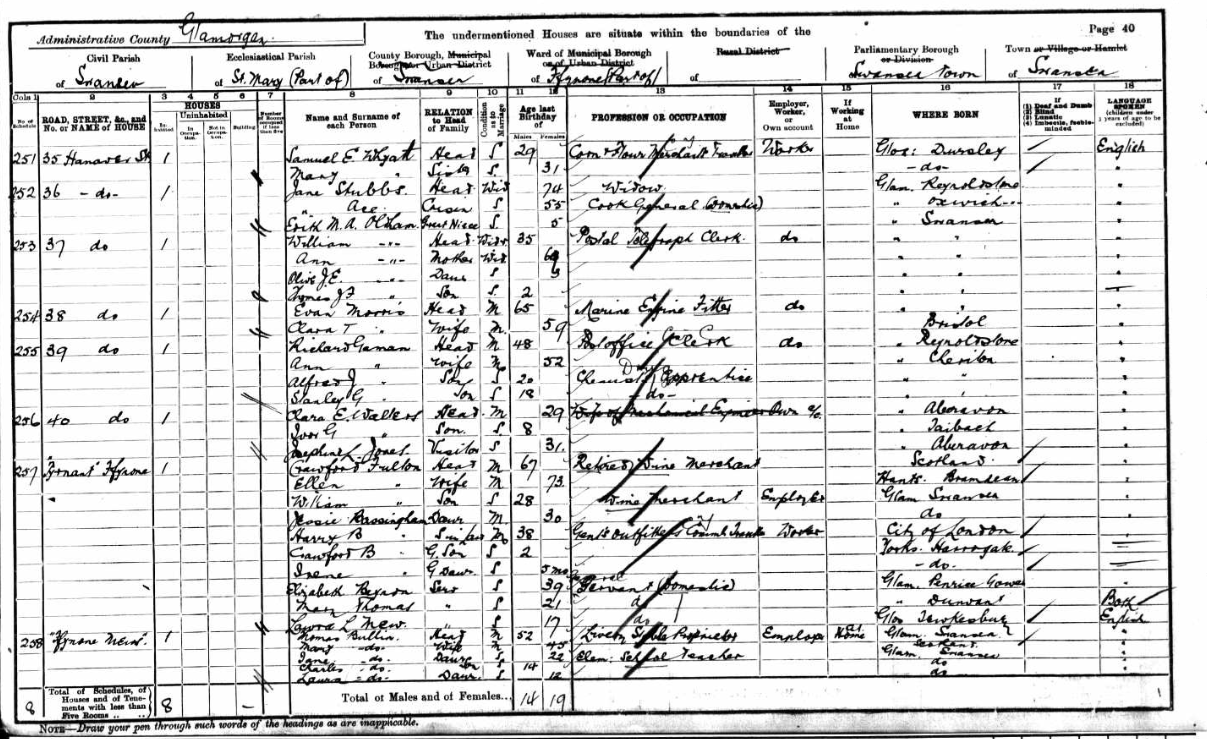 Administrative County Glamorgan
The undermentioned Houses are situate within the boundaries of the
Page 40
Civil Parish of Swansea
Ecclesiastical Parish of St. Mary (Part of)
County Borough, Municipal Borough or Urban District of Swansea
Ward of Municipal Borough or of Urban District of Ffynone (Part of)
Rural District of
Parliamentary Borough or Division Swansea Town
Town or Village or Hamlet of Swansea
Cols 1 2 3 4 5 6 7 8 9 10 11 12 13 14 15 16 17 18
No. of Schedule
ROAD, STREET, &c., and No. or NAME of HOUSE
HOUSES
Inhabited
Uninhabited
In Occupation
Not in Occupation
Building
Name and Surname of each Person
RELATION to Head of Family
Condition as to Marriage
Age last Birthday of
Males Females
PROFESSION OR OCCUPATION
Employer, Worker, or Own account
If Working at Home
WHERE BORN
(1) Deaf and Dumb
(2) Blind
(3) Lunatic
(4) Imbecile, feeble-minded
LANGUAGE SPOKEN
251 35 Hanover St 1 Samuel E. Whyatt Head S 29 Corn & Flour Merchant Worker Glos: Dursley English
Mary " Sister S 31 - do -
252 36 - do - 1 Jane Stubbs Head Wid 74 Widow Glam. Reynoldstone
" Ace Cousin S 55 Cook General (Domestic) " Oxwich
M. A. Oldham Great Niece S 5 " Swansea
253 37 do 1 William Head Widr 35 Postal Telegraph Clerk do " "
Ann Mother Wid
Olive J. E. Daur S
Thomas J F Son S 2
254 38 do 1 Evan Morris Head M 65 Marine Engine Fitter do
Clara T " Wife M 59 Bristol
255 39 do 1 Richard Gaman Head M 48 Post office Clerk do " Reynoldstone
Ann " Wife M 52 " Cheriton
Alfred J " Son S 20 Chemist Apprentice " "
Stanley G " Son S 18 - do -
256 40 do 1 Clara E. Walters Head M 29 Wife of Mechanical Engineer Own a/c " Aberavon
Ivor G " Son S 8 " Taibach
Josephine L. Jones Visitor S 31 " Aberavon
257 Ffynone 1 Crawford Fulton Head M 67 Retired Wine Merchant Scotland
Ellen " Wife M 73 Hants. Bramdean
William " Son S 28 Wine Merchant Employer Glam Swansea
Jessie Bassingham Daur M 30 do
Harry B " Son in law M 38 Gent's Outfitters Worker City of London
Crawford B " G. Son S 2 Yorks. Harrogate
Irene " G Daur S 5 mos - do -
Elizabeth Serv S 39 Servant (Domestic) Glam. Penrice Gower
Mary Thomas " S 21 do " Dunvant Both
Laura L. New " S 17 do Glos Tewkesbury English
258 "Ffynone Mews" 1 Thomas Bullin Head M 52 Livery Stable Proprietor Employer at Home Glam. Swansea
Mary - do - Wife M 45 Scotland
Jane - do - Daur S 22 Elem: School Teacher Glam Swansea
Charles - do - Son S 14 do
Laura - do - Daur S 12 do
8 Total of Schedules, of Houses and of Tenements with less than Five Rooms 8 - Total of Males and of Females... 14 19
NOTE—Draw your pen through such words of the headings as are inapplicable.